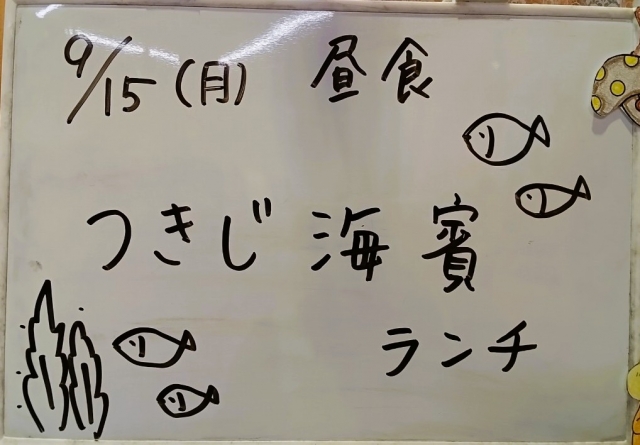 9/15(月) 昼食
つきじ海賓
ランチ